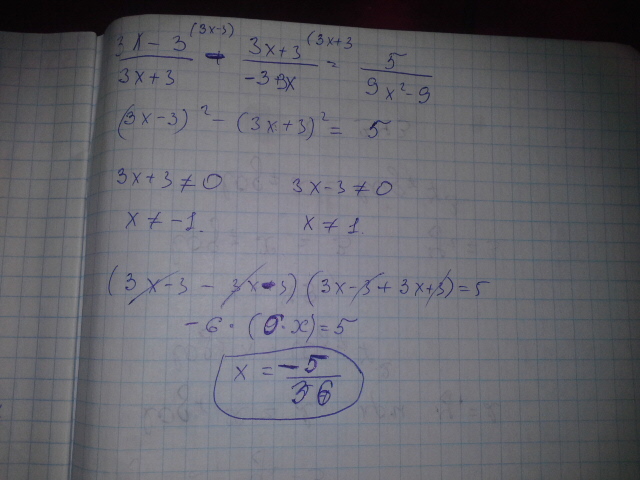 3x - 3 (3x-3) + 3x+3 (3x+3 = 5
3x+3 -3 9x 9x² - 9
(3x-3)² - (3x+3)² = 5
3x+3 ≠ 0 3x-3 ≠ 0
x ≠ -1. x ≠ 1.
(3x-3 - 3x-3) (3x-3+3x+3) = 5
-6 · (6·x) = 5
x = -5
36